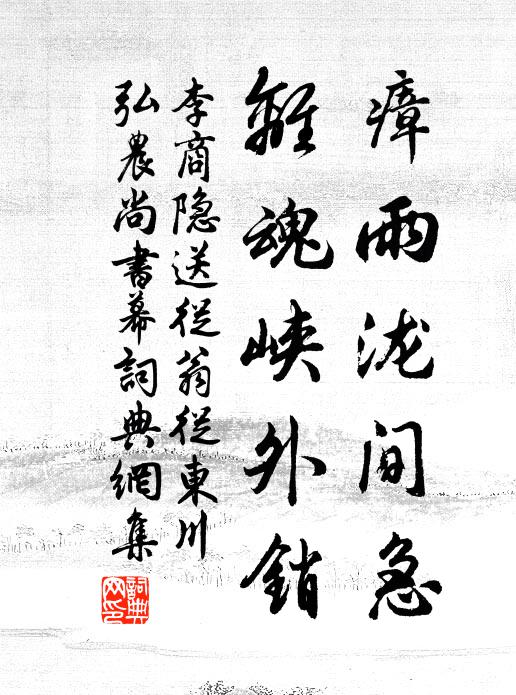 瘴雨泷间急
離魂峽外銷
李商隐送從翁從東川
弘農尚書幕詞典網集
詞典
网印